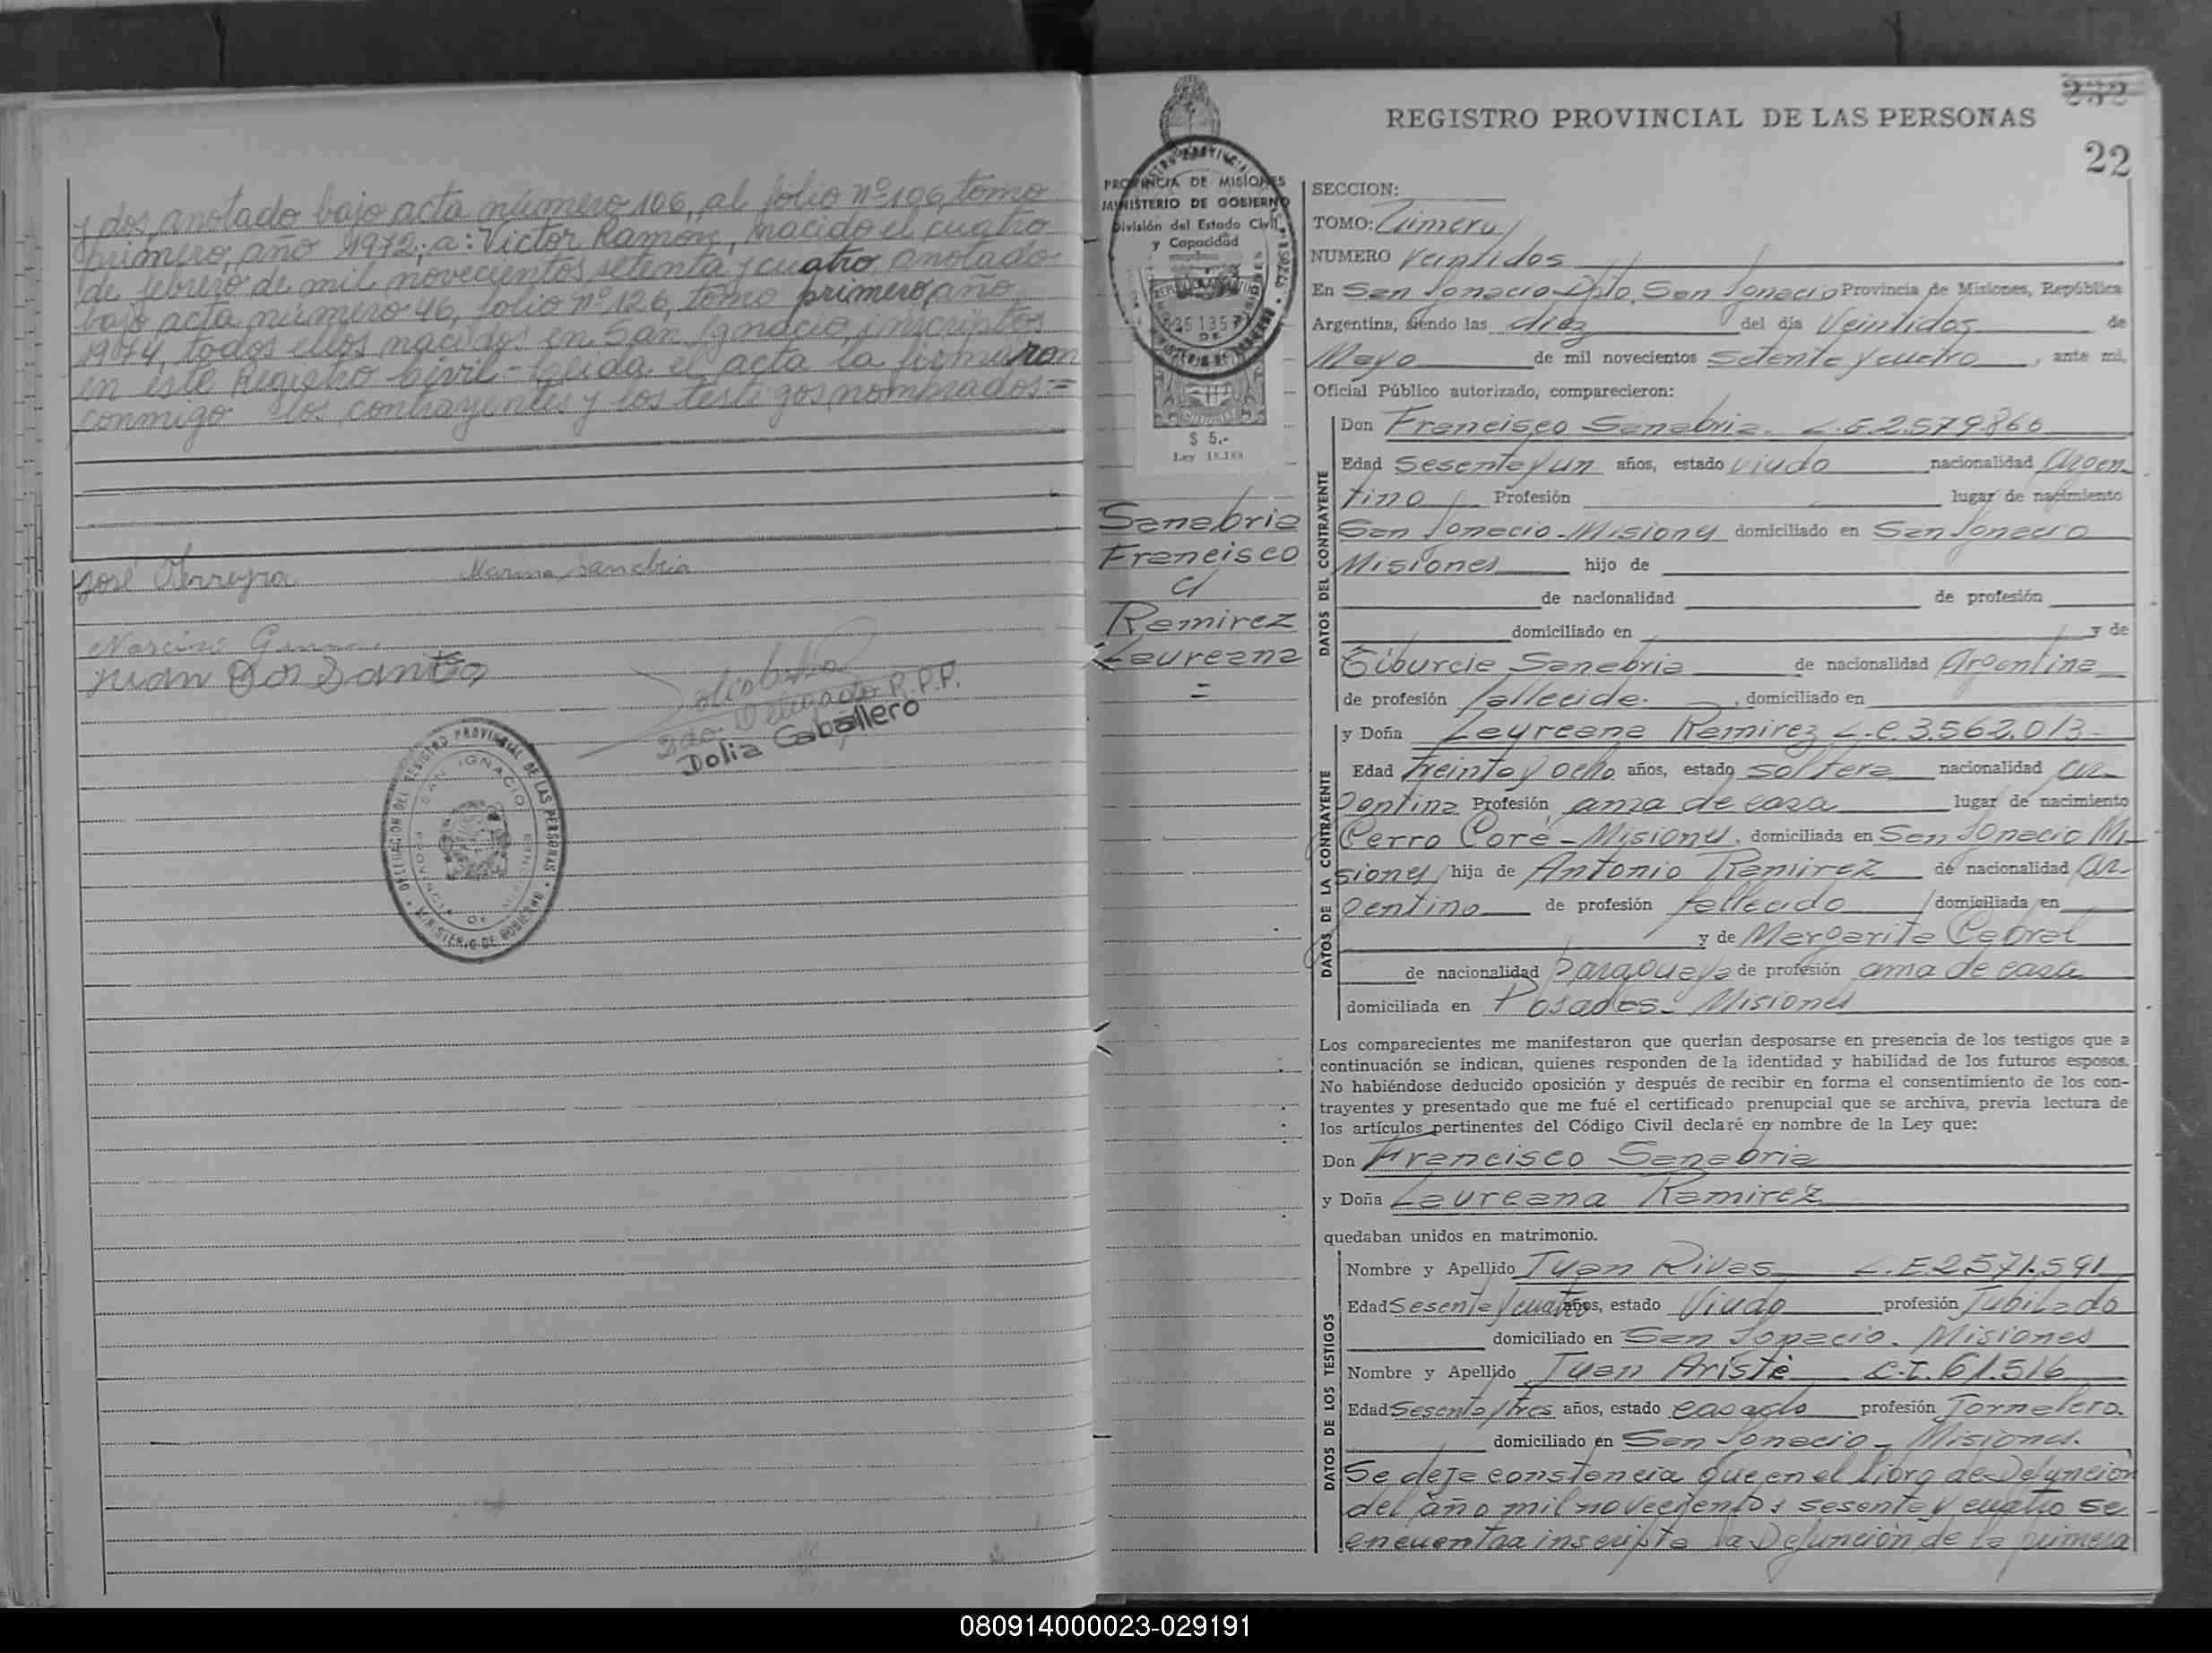 y dos, anotado bajo acta número 106, al folio nº 106, tomo
primero, año 1972; a: Victor Ramón, nacido el cuatro
de febrero de mil novecientos setenta y cuatro, anotado
bajo acta número 46, folio nº 126, tomo primero, año
1974, todos ellos nacidos en San Ignacio, inscriptos
en este Registro Civil - Leida el acta la firmaron
conmigo los contrayentes y los testigos nombrados.=
José Ferreyra
Marina Sanabria
Narciso
Juan Dos Santos
Delegado R.P.P.
Dolia Caballero
DELEGACION DEL REGISTRO PROVINCIAL DE LAS PERSONAS
SAN IGNACIO
PROVINCIA DE MISIONES
MINISTERIO DE GOBIERNO
PROVINCIA DE MISIONES
MINISTERIO DE GOBIERNO
División del Estado Civil
y Capacidad
$ 5.-
Ley 18.188
Sanabria
Francisco
c/
Ramirez
Laureana
=
232
REGISTRO PROVINCIAL DE LAS PERSONAS
22
SECCION:
TOMO: Primero
NUMERO Veintidos
En San Ignacio Dpto. San Ignacio Provincia de Misiones, República
Argentina, siendo las diez del día Veintidos de
Mayo de mil novecientos Setenta y cuatro, ante mi,
Oficial Público autorizado, comparecieron:
DATOS DEL CONTRAYENTE
Don Francisco Sanabria. L.E.2.579.866
Edad Sesenta y un años, estado viudo nacionalidad Argen
tino Profesión lugar de nacimiento
San Ignacio - Misiones domiciliado en San Ignacio
Misiones hijo de
de nacionalidad de profesión
domiciliado en y de
Tiburcia Sanabria de nacionalidad Argentina
de profesión fallecida. , domiciliado en
DATOS DE LA CONTRAYENTE
y Doña Laureana Ramirez L.C. 3.562.013-
Edad treinta y ocho años, estado soltera nacionalidad ar-
gentina Profesión ama de casa lugar de nacimiento
Cerro Corá - Misiones. domiciliada en San Ignacio Mi-
siones hija de Antonio Ramirez de nacionalidad ar-
gentino de profesión fallecido domiciliada en
y de Margarita Cabral
de nacionalidad paraguaya de profesión ama de casa
domiciliada en Posadas - Misiones
Los comparecientes me manifestaron que querían desposarse en presencia de los testigos que a
continuación se indican, quienes responden de la identidad y habilidad de los futuros esposos.
No habiéndose deducido oposición y después de recibir en forma el consentimiento de los con-
trayentes y presentado que me fué el certificado prenupcial que se archiva, previa lectura de
los artículos pertinentes del Código Civil declaré en nombre de la Ley que:
Don Francisco Sanabria
y Doña Laureana Ramirez
quedaban unidos en matrimonio.
DATOS DE LOS TESTIGOS
Nombre y Apellido Juan Rivas L.E.2.571.591
Edad Sesenta y cuatro años, estado Viudo profesión Jubilado
domiciliado en San Ignacio. Misiones
Nombre y Apellido Juan Aristé C.I. 61.516
Edad Sesenta y tres años, estado casado profesión Jornalero.
domiciliado en San Ignacio - Misiones.
Se deja constancia que en el libro de Defunción
del año mil novecientos sesenta y cuatro se
encuentra inscripta la Defunción de la primera
080914000023-029191